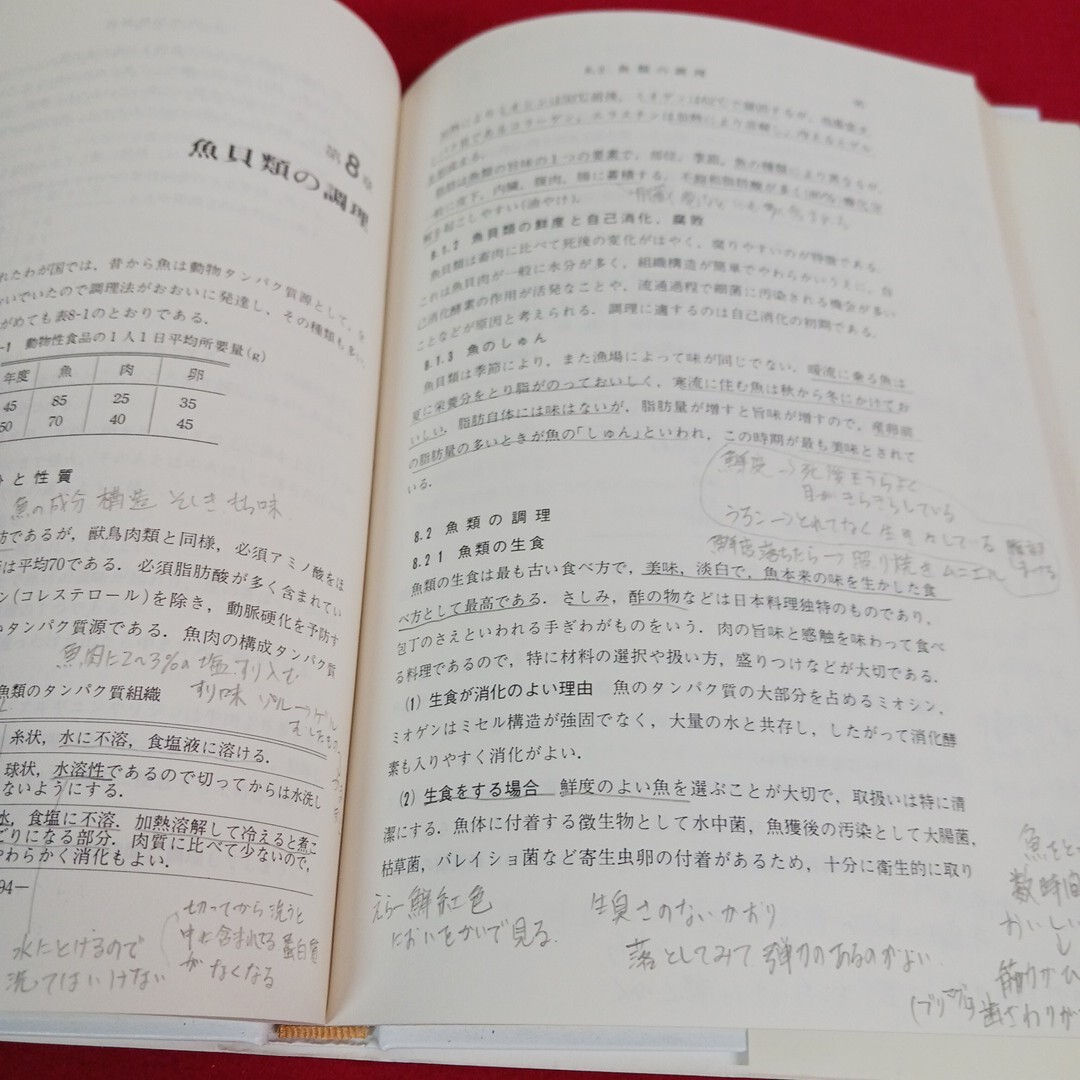 第8章
魚貝類の調理
れたわが国では，昔から魚は動物タンパク質源として，
いでいたので調理法がおおいに発達し，その種類も多い．
がめても表8-1のとおりである．
-1 動物性食品の1人1日平均所要量(g)
年度 魚 肉 卵
45 85 25 35
50 70 40 45
と性質
魚の成分 構造 そしき もち味
であるが，獣鳥肉類と同様，必須アミノ酸をほ
は平均70である．必須脂肪酸が多く含まれてい
ン(コレステロール)を除き，動脈硬化を予防す
タンパク質源である．魚肉の構成タンパク質
魚肉に2〜3%の塩 すり入む
すり味 ゾル→ゲル
魚類のタンパク質組織
糸状，水に不溶，食塩液に溶ける．
球状，水溶性であるので切ってからは水洗し
ないようにする．
水，食塩に不溶．加熱溶解して冷えると煮こ
ごりになる部分．肉質に比べて少ないので，
やわらかく消化もよい．
94-
切ってから洗うと
中に含まれてる蛋白質
がなくなる
水にとけるので
洗ってはいけない
8.2 魚類の調理
脂肪は魚類の旨味の1つの要素で，部位，季節，魚の種類により異なるが，
般に皮下，内臓，腹肉，腸に蓄積する．不飽和脂肪酸が多く(80%)酸化分
解を起こしやすい(油やけ)．
8.1.2 魚貝類の鮮度と自己消化，腐敗
魚貝類は畜肉に比べて死後の変化がはやく，腐りやすいのが特徴である．
これは魚貝肉が一般に水分が多く，組織構造が簡単でやわらかいうえに，自
己消化酵素の作用が活発なことや，流通過程で細菌に汚染される機会が多い
ことなどが原因と考えられる．調理に適するのは自己消化の初期である．
8.1.3 魚のしゅん
魚貝類は季節により，また漁場によって味が同じでない．暖流に乗る魚は
夏に栄養分をとり脂がのっておいしく，寒流に住む魚は秋から冬にかけてお
いしい．脂肪自体には味はないが，脂肪量が増すと旨味が増すので，産卵前
の脂肪量の多いときが魚の「しゅん」といわれ，この時期が最も美味とされて
いる．
鮮度→死後こうちよく
目がきらきらしている
うろこ→とれてなく生き
鮮度落ちたら→照り焼き ムニエル
8.2 魚類の調理
8.21 魚類の生食
魚類の生食は最も古い食べ方で，美味，淡白で，魚本来の味を生かした食
べ方として最高である．さしみ，酢の物などは日本料理独特のものであり，
包丁のさえといわれる手ぎわがものをいう．肉の旨味と感触を味わって食べ
る料理であるので，特に材料の選択や扱い方，盛りつけなどが大切である．
(1) 生食が消化のよい理由 魚のタンパク質の大部分を占めるミオシン，
ミオゲンはミセル構造が強固でなく，大量の水と共存し，したがって消化酵
素も入りやすく消化がよい．
(2) 生食をする場合 鮮度のよい魚を選ぶことが大切で，取扱いは特に清
潔にする．魚体に付着する微生物として水中菌，魚獲後の汚染として大腸菌，
枯草菌，バレイショ菌など寄生虫卵の付着があるため，十分に衛生的に取り
えら→鮮紅色
においをかいで見る．
生臭さのないかおり
落としてみて 弾力のあるのがよい．
魚をと
数時間
おいしい
↓